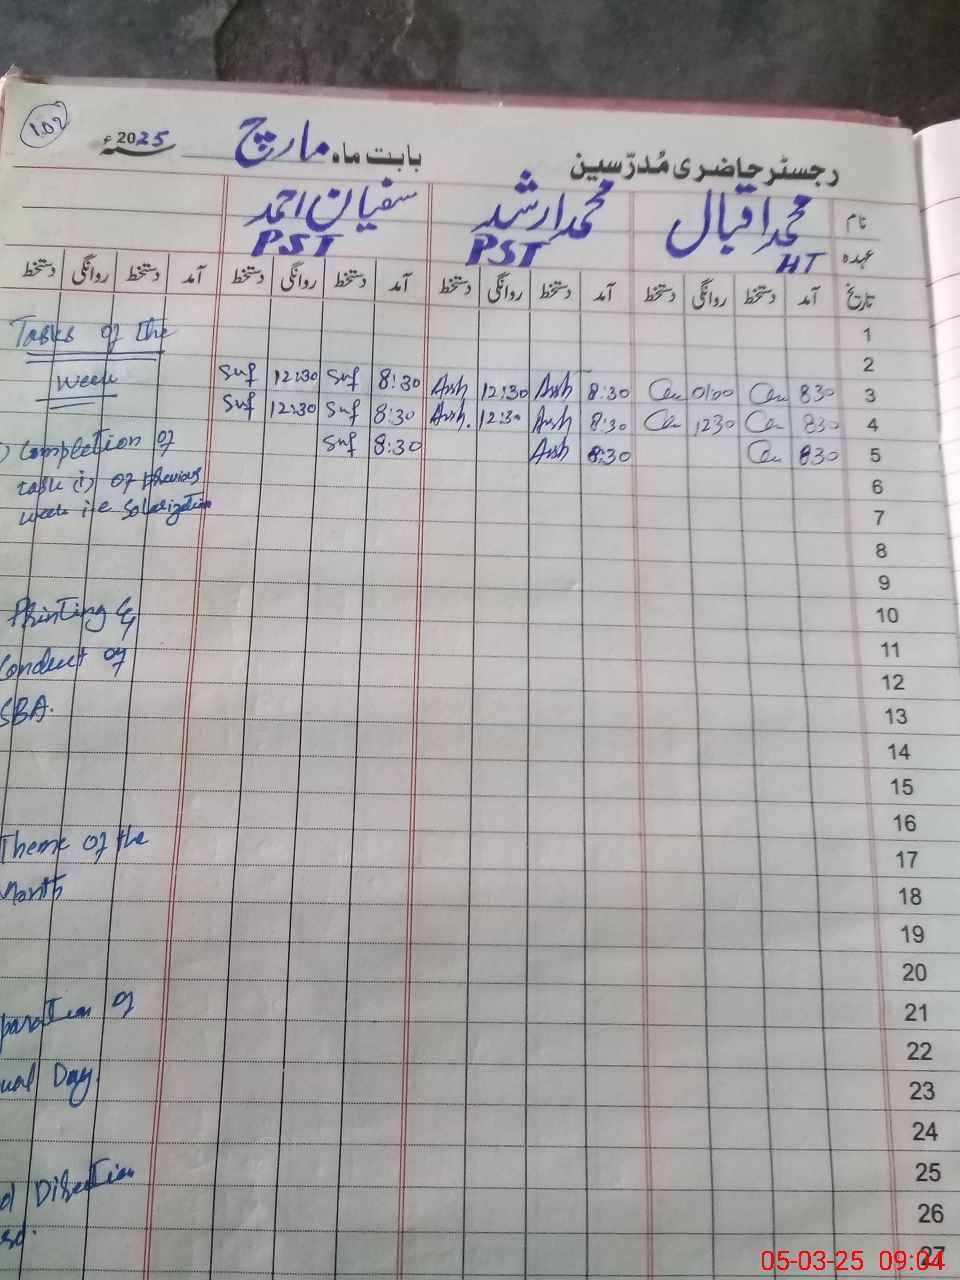 102
رجسٹر حاضری مُدرّسین بابت ماہ مارچ 2025ء
نام محمد اقبال محمد ارشد سفیان احمد
عہدہ HT PST PST
تاریخ آمد دستخط روانگی دستخط آمد دستخط روانگی دستخط آمد دستخط روانگی دستخط آمد دستخط روانگی دستخط
1
2
Suf 12:30 Suf 8:30 Arsh 12:30 Arsh 8:30 01:00 830 3
Suf 12:30 Suf 8:30 Arsh. 12:30 Arsh 8:30 1230 830 4
Suf 8:30 Arsh 8:30 830 5
6
7
8
9
10
11
12
13
14
15
16
17
18
19
20
21
22
23
24
25
26
27
Tasks of the
week
) Completion of
task (i) of previous
week i.e Solarization
Printing &
Conduct of
SBA.
Theme of the
Month
paration of
ual Day.
d Direction
05-03-25 09:04